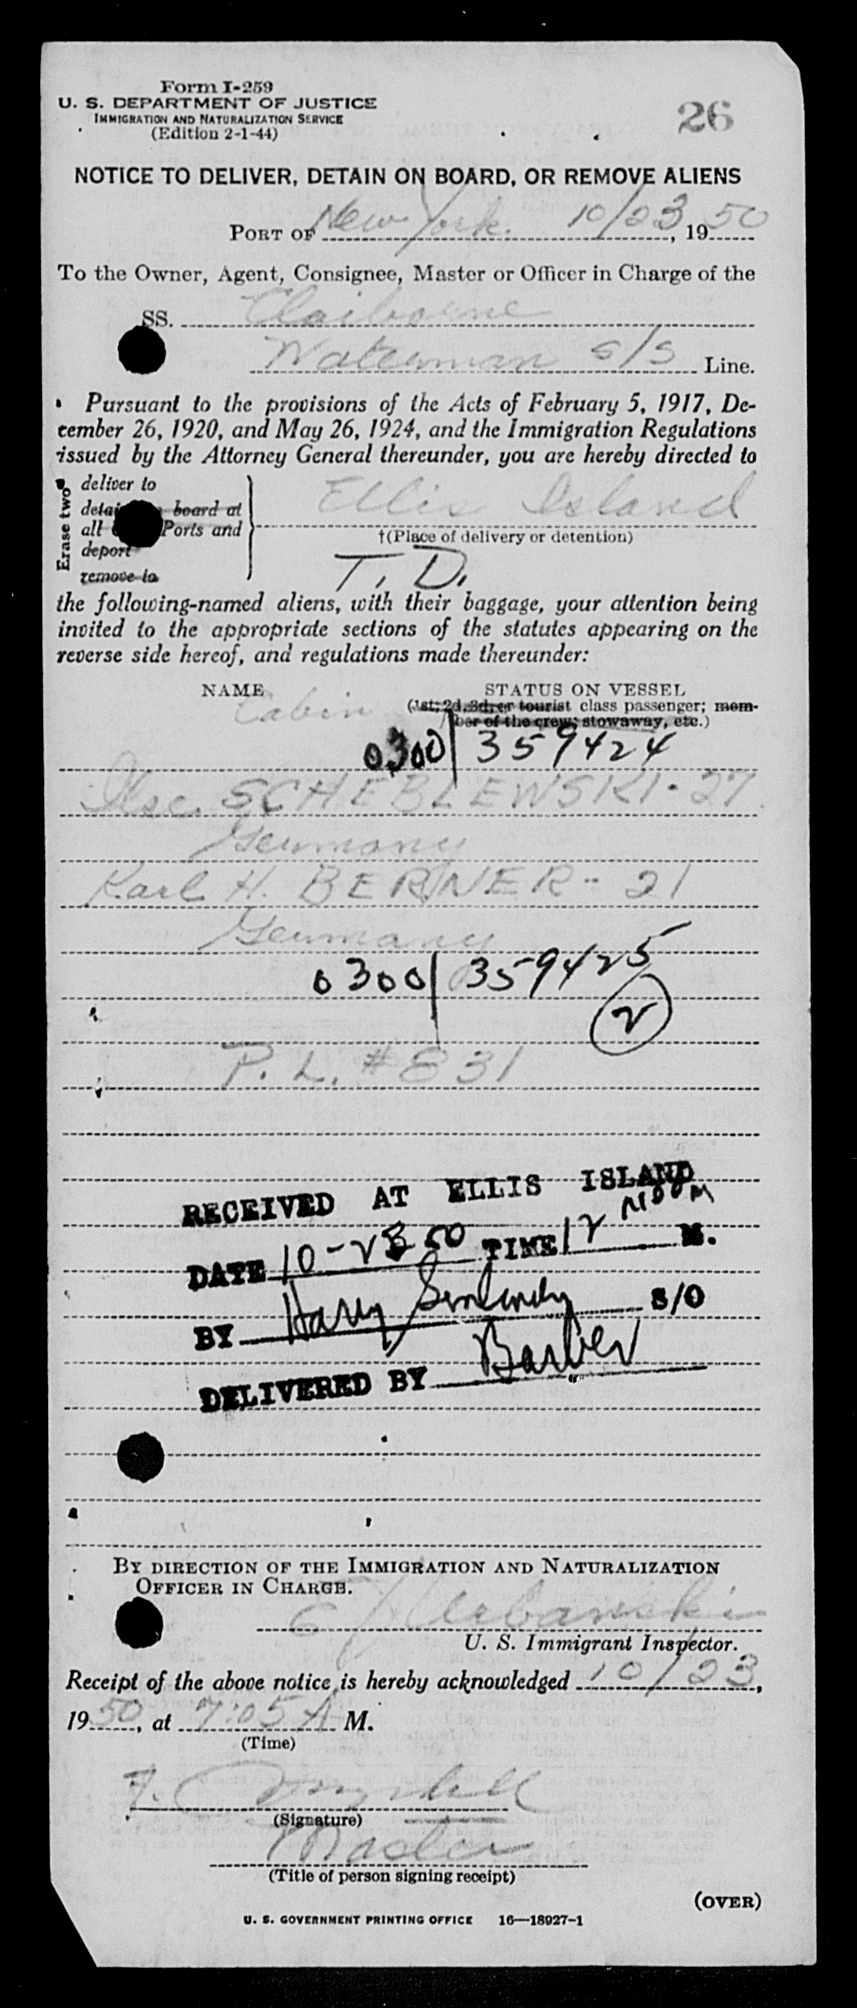 Form I-259
U. S. DEPARTMENT OF JUSTICE
IMMIGRATION AND NATURALIZATION SERVICE
(Edition 2-1-44)
26
NOTICE TO DELIVER, DETAIN ON BOARD, OR REMOVE ALIENS
PORT OF New York. 10/23, 1950
To the Owner, Agent, Consignee, Master or Officer in Charge of the
SS. Claiborne
Waterman S/S Line.
Pursuant to the provisions of the Acts of February 5, 1917, De-
cember 26, 1920, and May 26, 1924, and the Immigration Regulations
issued by the Attorney General thereunder, you are hereby directed to
Erase two
deliver to
board at
all Ports and
deport
remove to
Ellis Island
†(Place of delivery or detention)
T. D.
the following-named aliens, with their baggage, your attention being
invited to the appropriate sections of the statutes appearing on the
reverse side hereof, and regulations made thereunder:
NAME STATUS ON VESSEL
Cabin (1st, 2d, 3d, or tourist class passenger; mem-
ber of the crew; stowaway, etc.)
0300/359424
Ilse SCHEBLEWSKI - 27
Germany
Karl H. BERNER - 21
Germany
0300/359425
2
P. L. #831
RECEIVED AT ELLIS ISLAND
DATE 10-23 50 TIME 12 NOON M.
BY Harry S/O
DELIVERED BY Barber
BY DIRECTION OF THE IMMIGRATION AND NATURALIZATION
OFFICER IN CHARGE.
Urbanski
U. S. Immigrant Inspector.
Receipt of the above notice is hereby acknowledged 10/23,
1950, at 7:05 A M.
(Time)
(Signature)
Master
(Title of person signing receipt)
(OVER)
U. S. GOVERNMENT PRINTING OFFICE 16—18927-1